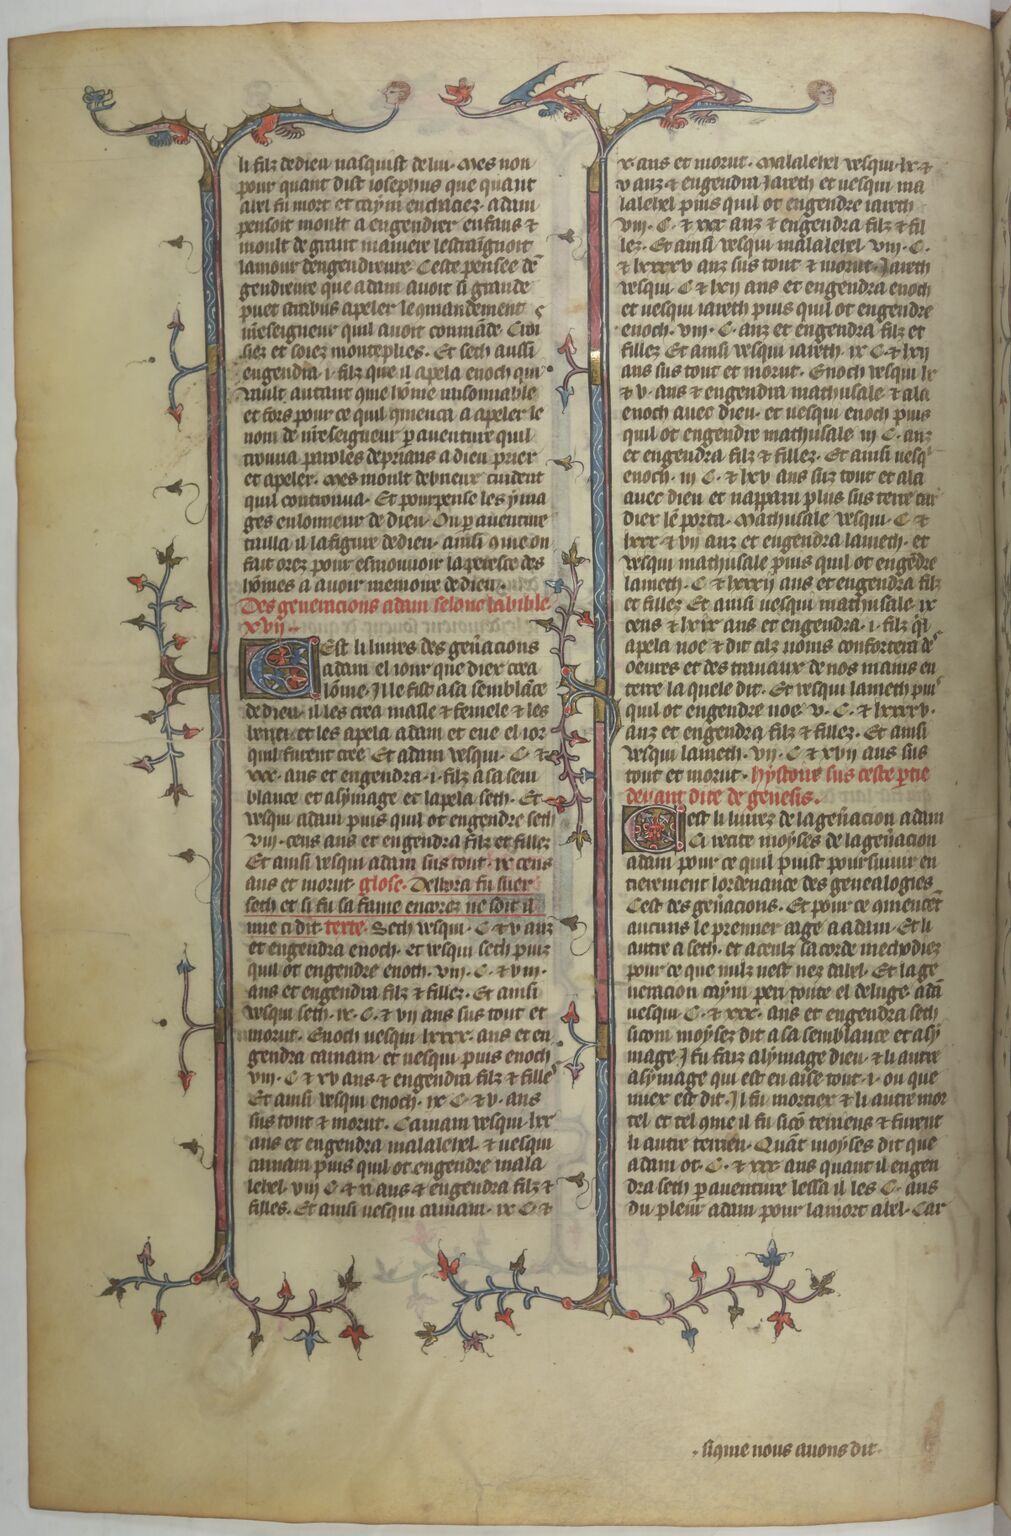 li filz dedieu nasquist de lui. Mes non
pour quant dist iosephus que quant
abel fu mort et caym enchaciez. adam
pensoit moult a engendrer enfans &
moult de grant maniere lestraignoit
lamour dengendreure. Ceste pensee dē
gendreure que adam auoit si grande
puet seth apeler le 9mandement
nreseigneur quil auoit cōmāde. Croi
siez et soiez monteplies. Et seth aussi
engendra .i. filz que il apela enoch qui
vault autant que hōme raisonnable
et fors pour ce quil 9menca a apeler le
nom de nreseigneur p auenture quil
trouua paroles deprians a dieu prier
et apeler. Mes moult debrieux cuident
quil controuua. Et pourpense les yma
ges enlonneur de dieu. Ou p auenture
tailla il la figure dedieu. ainsi 9me on
fait orez pour esmouuoir la peresce des
hōmes a auoir memoire de dieu.
Des generacions adam selonc la bible
xvij.
Cest li liures des gen̄acions
adam el iour que diex crea
lōme. Il le fist a sa semblāce
de dieu. il les crea masle & femele & les
benei. et les apela adam et eue el ior
quil furent cree. Et adam vesqui. C. &
xxx. ans et engendra .i. filz a sa sem
blance et a symage et lapela seth. Et
vesqui adam puis quil ot engendre seth
viij. cens ans et engendra filz et filles
Et ainsi vesqui adam sus tout. ix cens
ans et morut. glose. Delbora fu suer
seth et si fu sa fame encorez ne soit il
mie ci dit. texte. Seth vesqui. C. & v anz
et engendra enoch. et vesqui seth puiz
quil ot engendre enoch. viij. C. & viij.
ans et engendra filz & fillez. Et ainsi
vesqui seth. ix. C. & vij ans sus tout et
morut. Enoch vesqui lxxxx. ans et en
gendra cainam. et vesqui puis enoch
viij. C & xv ans & engendra filz & fille
Et ainsi vesqui enoch. ix C. & v. ans
sus tout & morut. Cainam vesqui. lxx
ans et engendra malalehel. & vesqui
cainam puis quil ot engendre mala
lehel. viij C & xl ans & engendra filz &
filles. Et ainsi vesqui cainam. ix C &
x ans et morut. Malalehel vesqui. lx &
v anz & engendra Iareth et vesqui ma
lalehel puis quil ot engendre iareth
viij. C. & xxx anz & engendra filz & fil
lez. Et ainsi vesqui malalehel viij. C.
& lxxxxv anz sus tout & morut. Iareth
vesqui. C & lxij ans et engendra enoch
et vesqui iareth puis quil ot engendre
enoch. viij. C. anz et engendra filz et
fillez Et ainsi vesqui iareth. ix C. & lxij
ans sus tout et morut. Enoch vesqui lx
& v. ans & engendra mathusale & ala
enoch auec dieu. et vesqui enoch puis
quil ot engendre mathusale iij C. anz
et engendra filz & fillez. Et ainsi vesq
enoch. iij C. & lxv ans suz tout et ala
auec dieu et napparu plus sus terre car
dier lē porta. Mathusale vesqui. C &
lxxx & vij anz et engendra lameth. et
vesqui mathusale puis quil ot engēdre
lameth. C & lxxxij ans et engendra filz
et fillez Et ainsi vesqui mathusale ix
cens & lxix ans et engendra .i. filz qi
apela noe & dit cilz noms confortera de
oeures et des trauaux de nos mains en
terre la quele dit. Et vesqui lameth pui
quil ot engendre noe. v. C. & lxxxxv.
anz et engendra filz & fillez. Et ainsi
vesqui lameth. vij. C & xvij ans sus
tout et morut. hystoire sus ceste ptie
deuant dite de genesis.
Cest li liurez de la gen̄acion adam
Ci recite moyses de la gen̄acion
adam pour ce quil puist poursuiuir en
tierement lordenance des genealogies
Cest des gen̄acions. Et pour ce 9mencēt
aucuns le premier aage a adam. Et li
autre a seth. et a ceulz sacorde methodiez
pour ce que nulz nest nez dabel. Et la ge
neracion caym peri toute el deluge. adā
vesqui. C. & xxx. ans et engendra seth
sicom moysez dit a sa semblance et a sy
mage. I fu faiz a lymage dieu. & li autre
a lymage qui est en aise tout .i. ou que
muex est dit. Il fu mortiex & li autre mor
tel et tel 9me il fu sicō terriens & furent
li autre terrien. Quāt moyses dit que
adam ot. C. & xxx ans quant il engen
dra seth p auenture lessa il les C. ans
du pleur adam pour la mort abel. Car
. si9me nous auons dit.